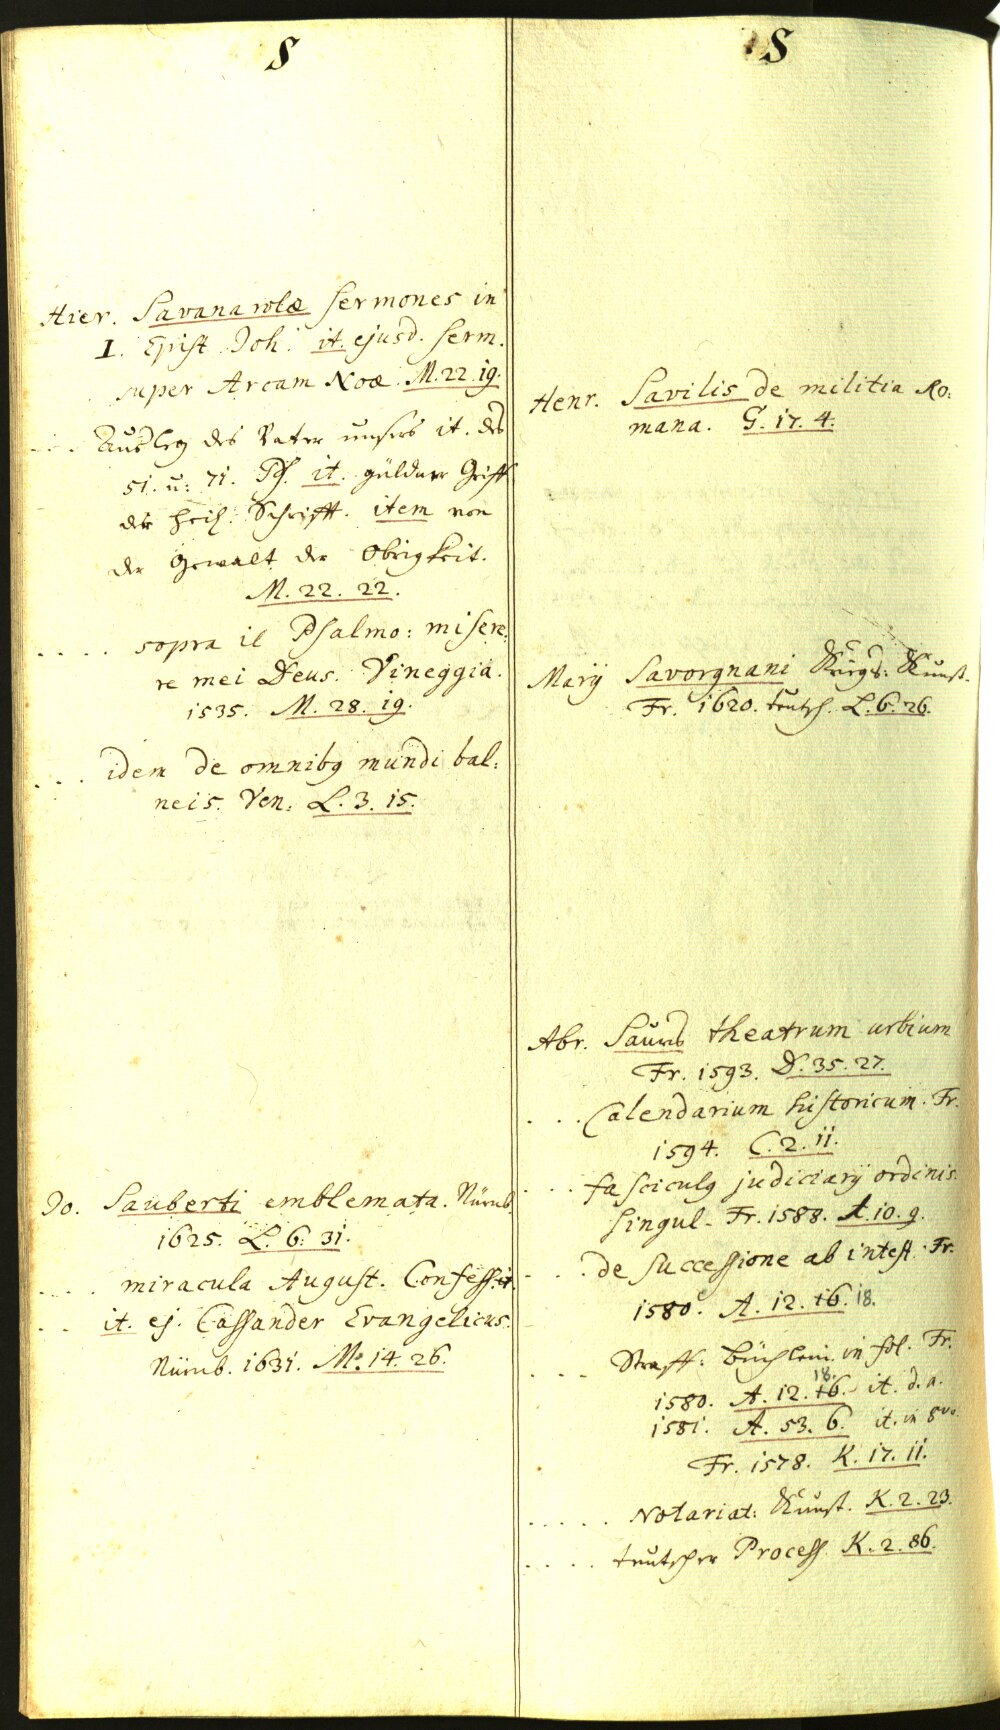 S
Hier. Savanarolæ sermones in
I. Epist Joh. it. ejusd. serm.
super Arcam Noæ. M. 22. 19.
. . . Außleg des Vater unsers it. des
51. u: 71. Ps. it. güldner Griff
der heil: Schrifft. item von
der Gewalt der Obrigkeit.
M. 22. 22.
. . . . sopra il Psalmo: misere:
re mei Deus. Vineggia.
1535. M. 28. 19.
. . . idem de omnibg mundi bal:
neis. Ven: L. 3. 15.
Jo. Sauberti emblemata. Nürnb.
1625. L. 6. 31.
. . . . miracula August. Confess. it.
. . it. ej. Cassander Evangelicus.
Nürnb. 1631. M. 14. 26.
S
Henr. Savilis de militia Ro:
mana. G. 17. 4.
Marij Savorgnani Kriegs: Kunst.
Fr. 1620. teutsch. L. 6. 26.
Abr. Saurs theatrum urbium
Fr. 1593. D. 35. 27.
. . . Calendarium historicum. Fr.
1594. C. 2. 11.
. . . fasciculg judiciarij ordinis
singul. Fr. 1588. A. 10. 9.
. . . de successione ab intest. Fr.
1580. A. 12. 16. 18.
. . . Straff: büchlein. in fol. Fr.
18.
1580. A. 12. 16. it. d. a.
1581. A. 53. 6. it. in 8vo.
Fr. 1578. K. 17. 11.
. . . . . Notariat: Kunst. K. 2. 23.
. . . . teutscher Process. K. 2. 86.